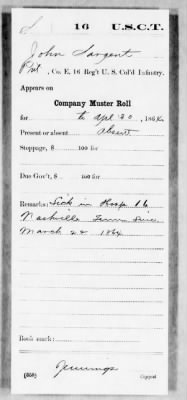 S 16 U.S.C.T.
John Sargent
Pvt, Co. E, 16 Reg't U. S. Col'd Infantry.
Appears on
Company Muster Roll
for to Apl 30, 1864.
Present or absent Absent
Stoppage, $ 100 for
Due Gov't, $ 100 for
Remarks: Sick in Hosp 16
Nashville Tenn since
March 22 1864
Book mark:
Jennings
(358) Copyist.